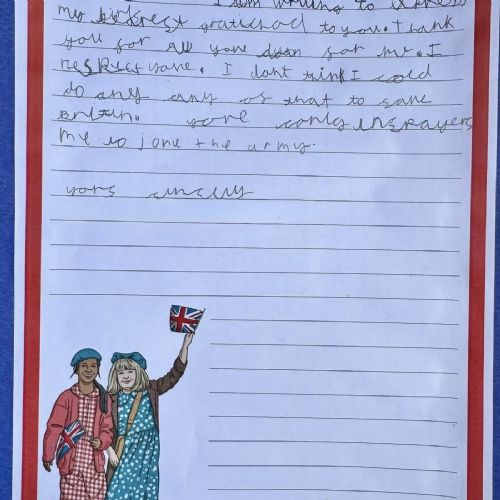 I am writing to express
my biggest gratichod to you. Thank
you for all youe doon for me. I
respect youe. I dont think I coold
do any any of that to save
Britin. youre only inspayers
me to jone the army.
yors sincely